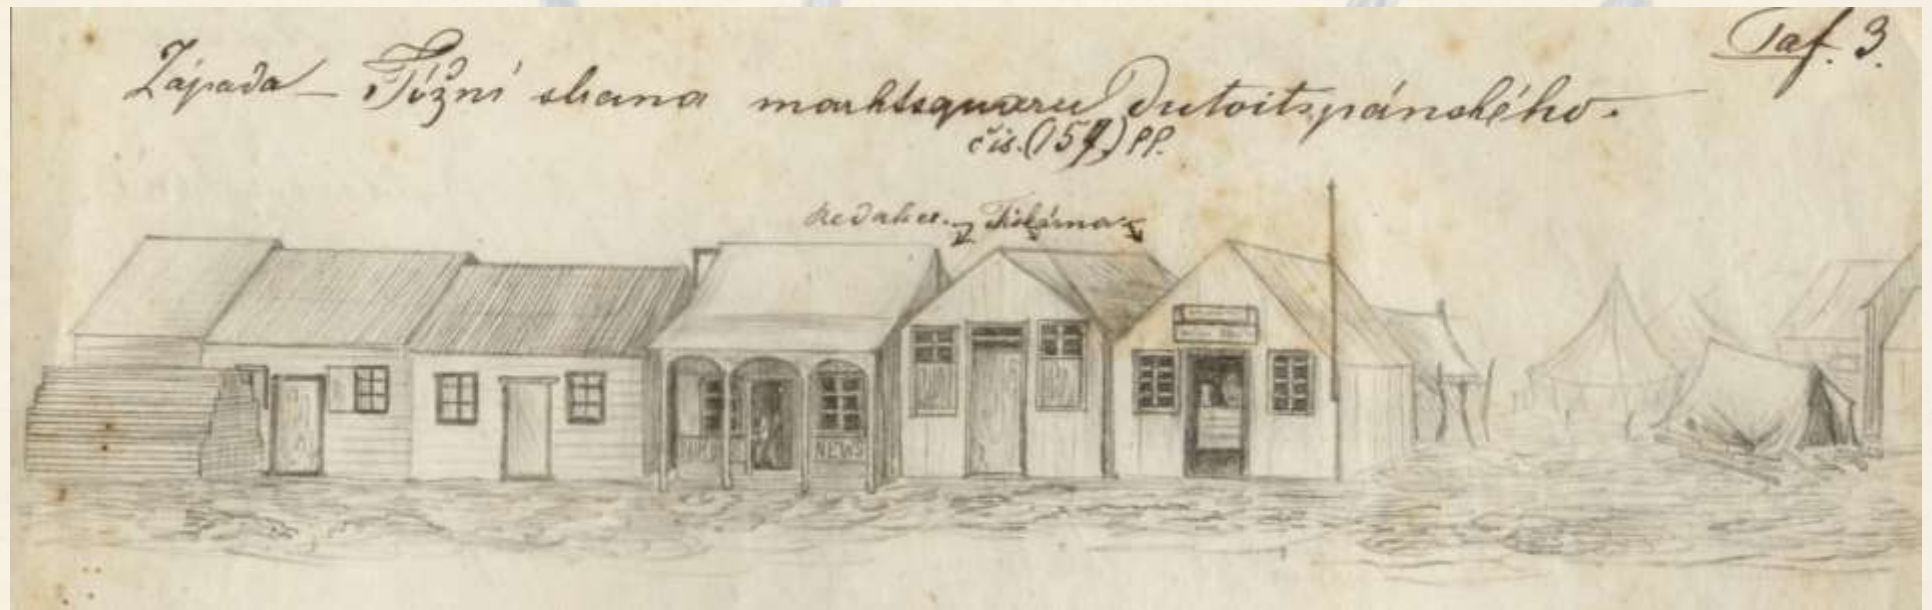 Taf. 3.
Západa – Jižní strana marktsquaru Dutoitspánského.
čís. (157) pp.
Redakce. Tiskárna
NEWS